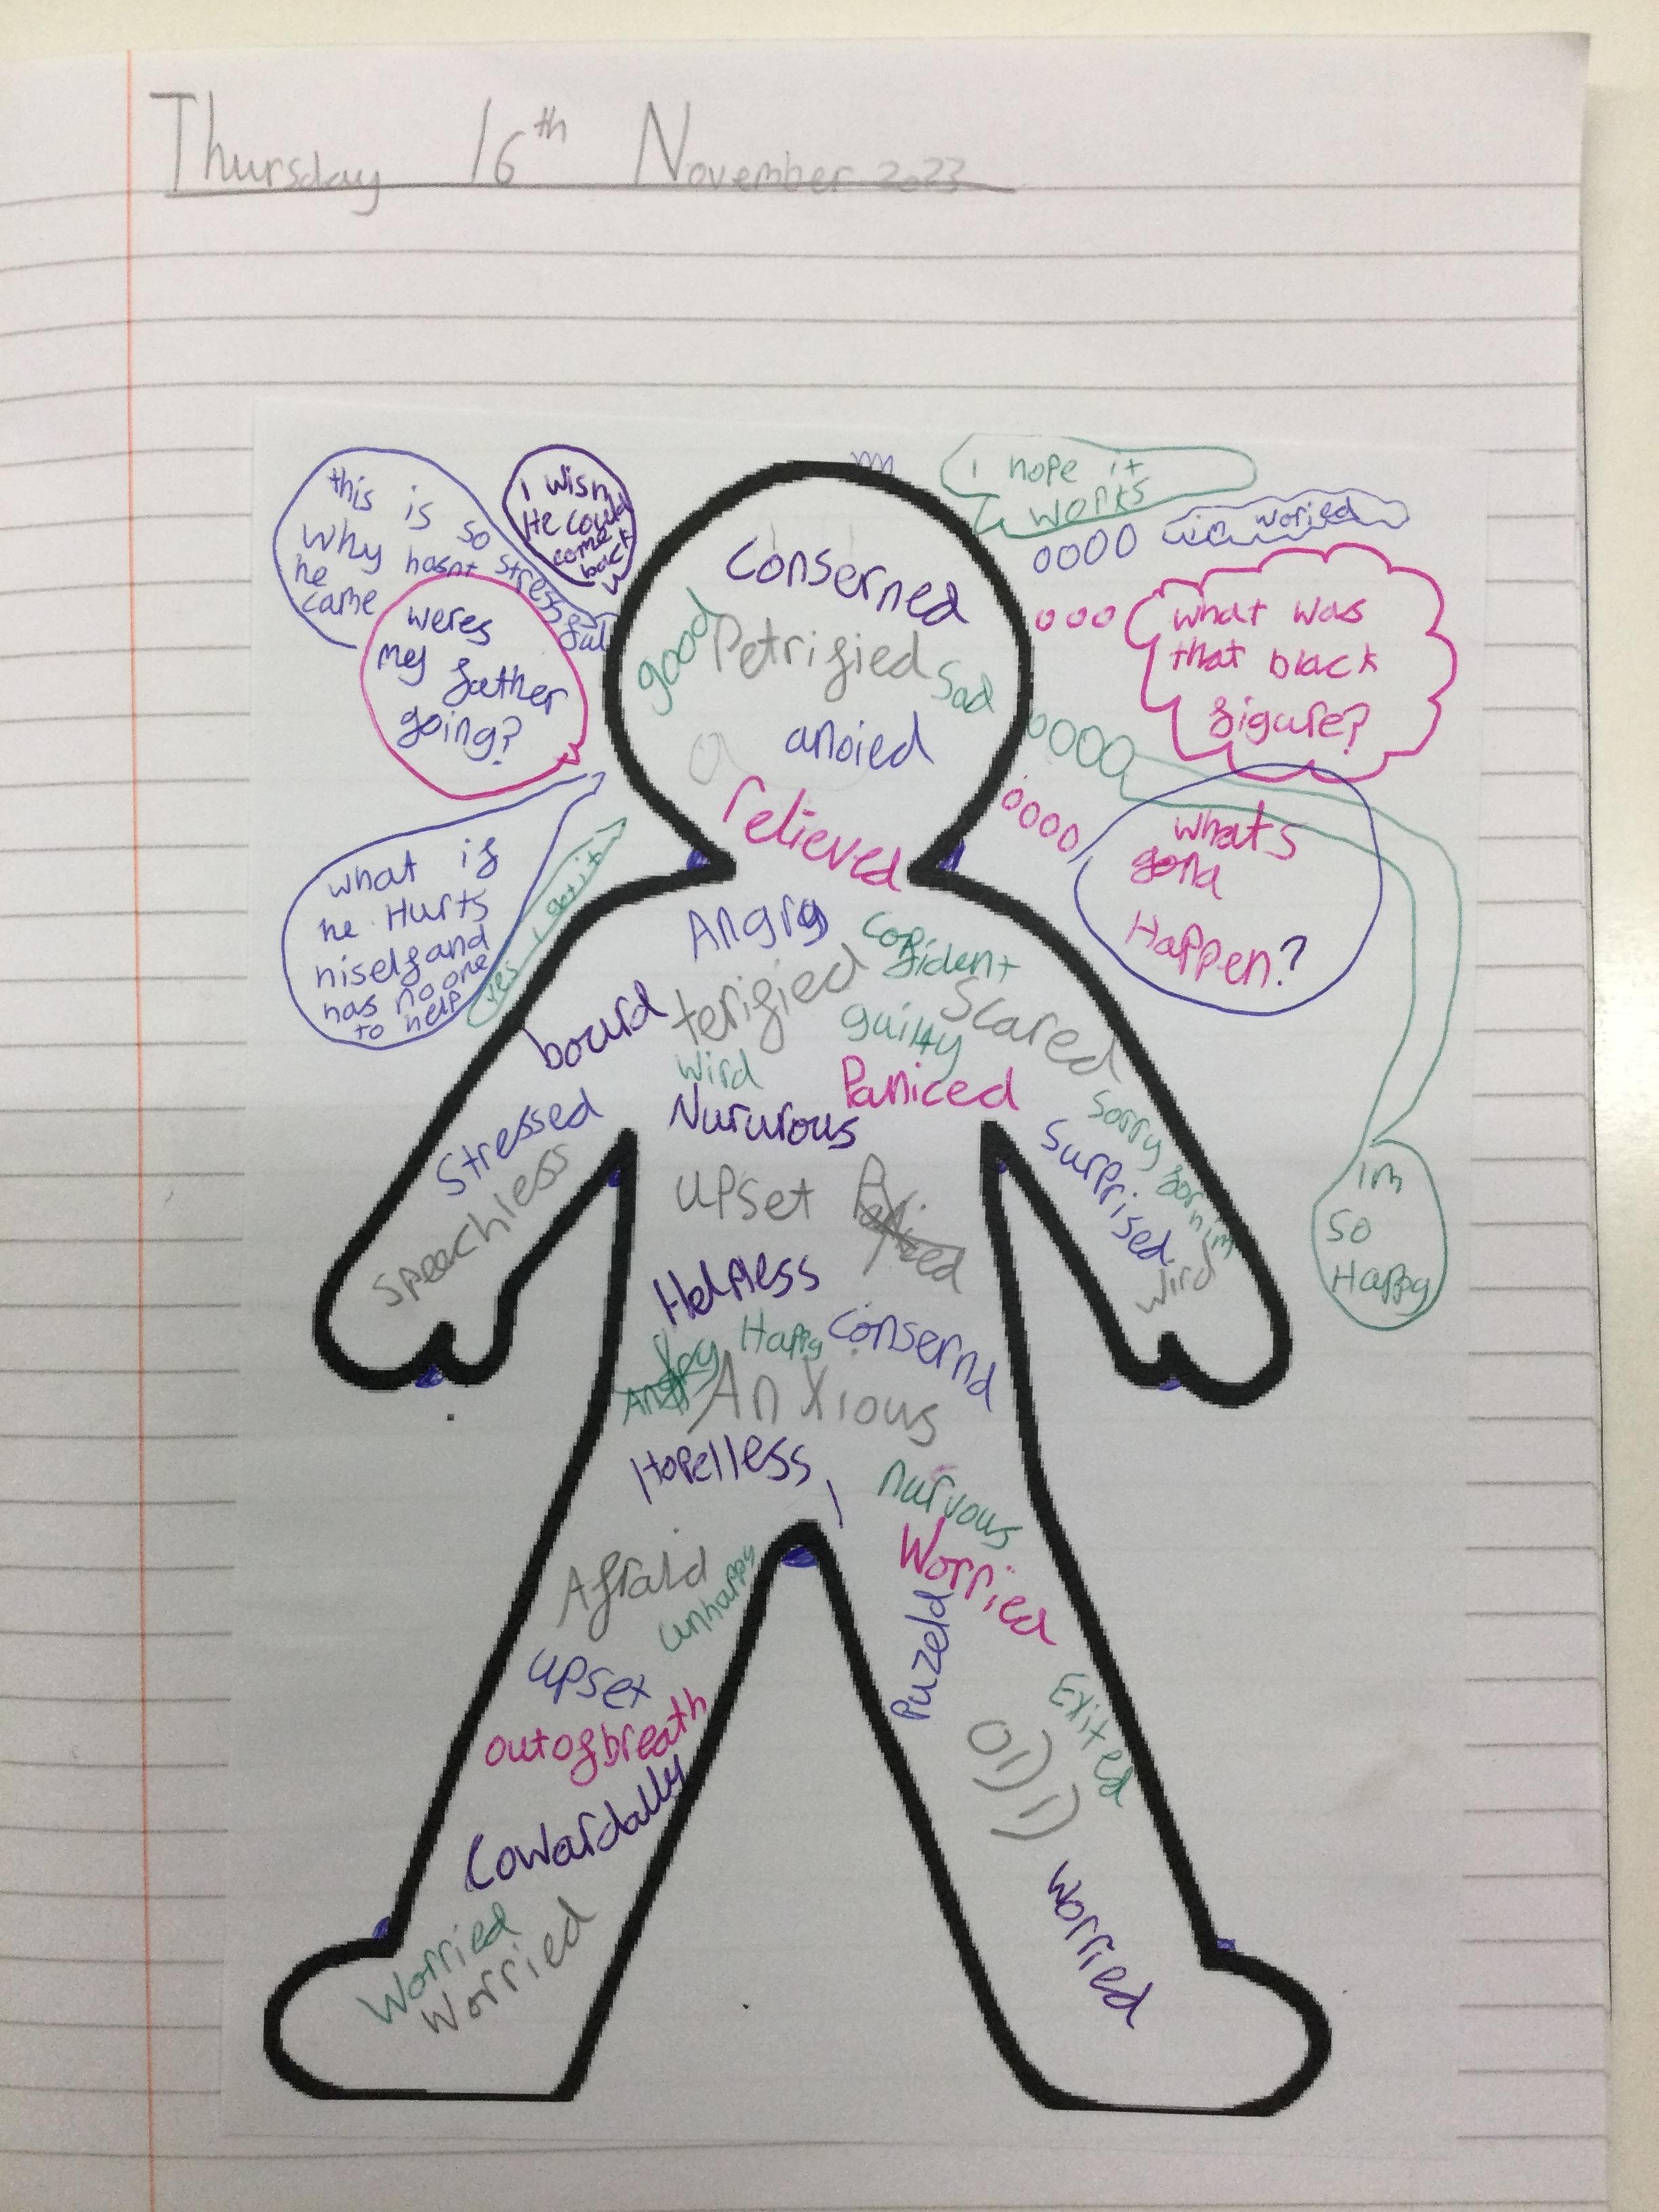 Thursday 16th November 2023
this is so stressful
why hasnt
he
came
i wish
He could
come
back
weres
my father
going?
what if
he Hurts
hiself and
has no one
to help
yes i got it
i hope it
works
im woried
what was
that black
figure?
whats
gona
Happen?
im
so
Happy
Conserned
good Petrified Sad
anoied
relieved
Angry Confident
bourd terified Scared
guilty
wird Paniced
Stressed Nururous Surprised
Sorry for him
Speachless upset
wird
Helpless
Happy Consernd
Angry Anxious
Hopelless
nurvous
Afraid unhappy Worried
upset Puzeld
out of breath Exited
Cowardally
Worried
Worried
Worried